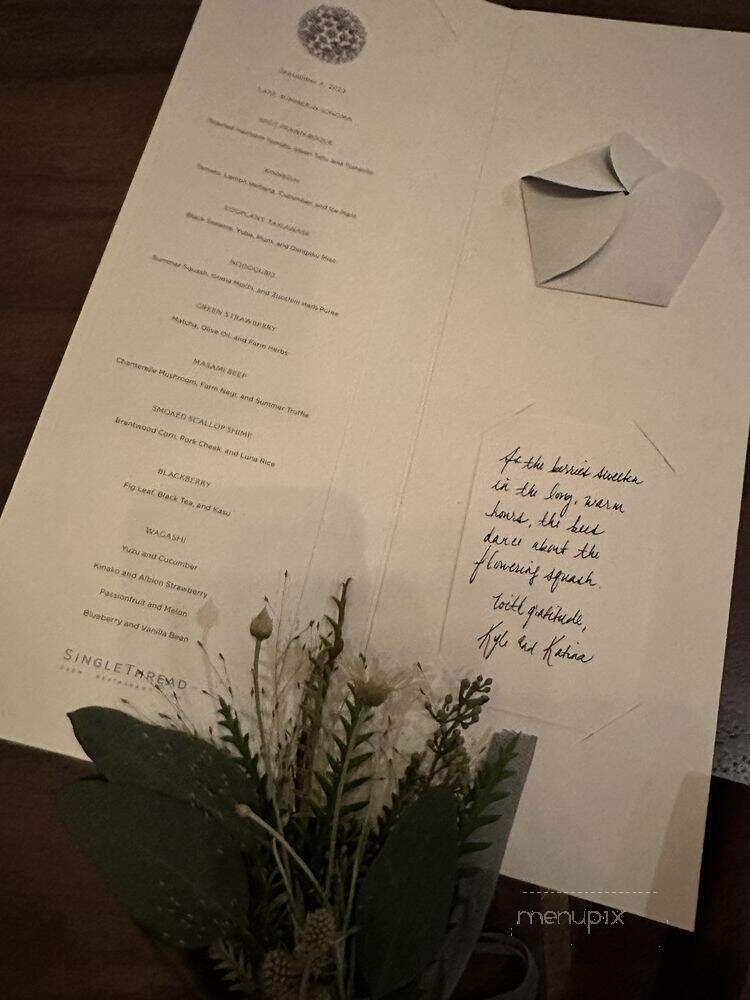 LATE SUMMER IN SONOMA
SPOT PRAWN
Tomato, Lemon Verbena, Cucumber, and Ice Plant
EGGPLANT
Black Sesame, Yuba, Plum, and Dengaku Miso
Summer Squash, Goma Mochi, and Zucchini Herb Puree
GREEN STRAWBERRY
Matcha, Olive Oil, and Farm Herbs
MASAMI BEEF
Chanterelle Mushroom, Farm Negi, and Summer Truffle
SMOKED SCALLOP SHIME
Brentwood Corn, Pork Cheek, and Luna Rice
BLACKBERRY
Fig Leaf, Black Tea, and Kasu
WAGASHI
Yuzu and Cucumber
Kinako and Albion Strawberry
Passionfruit and Melon
Blueberry and Vanilla Bean
SINGLETHREAD
FARM RESTAURANT
As the berries sweeten
in the long, warm
hours, the bees
dance about the
flowering squash.
With gratitude,
Kyle and Katina
menupix